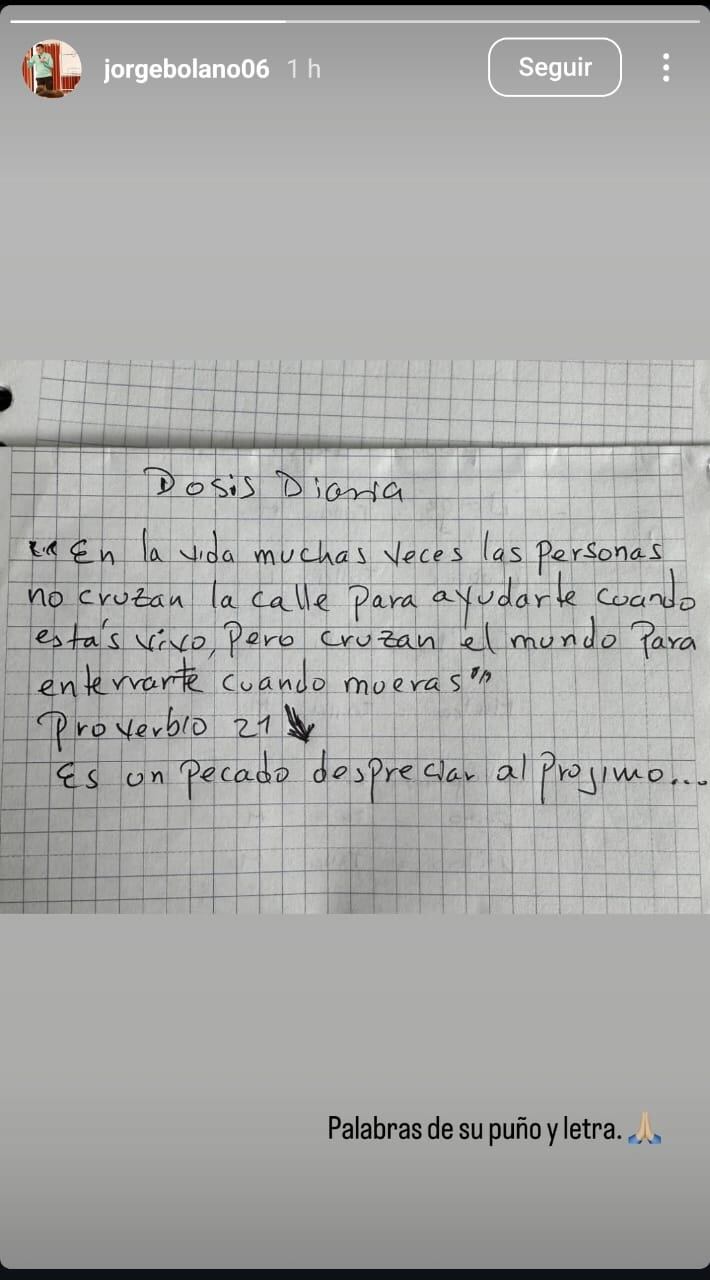 jorgebolano06 1 h
Seguir
Dosis Diaria
"En la vida muchas veces las personas
no cruzan la calle para ayudarte cuando
estas vivo, pero cruzan el mundo para
enterrarte cuando mueras"
Proverbio 21
Es un pecado despreciar al projimo...
Palabras de su puño y letra. 🙏🏼